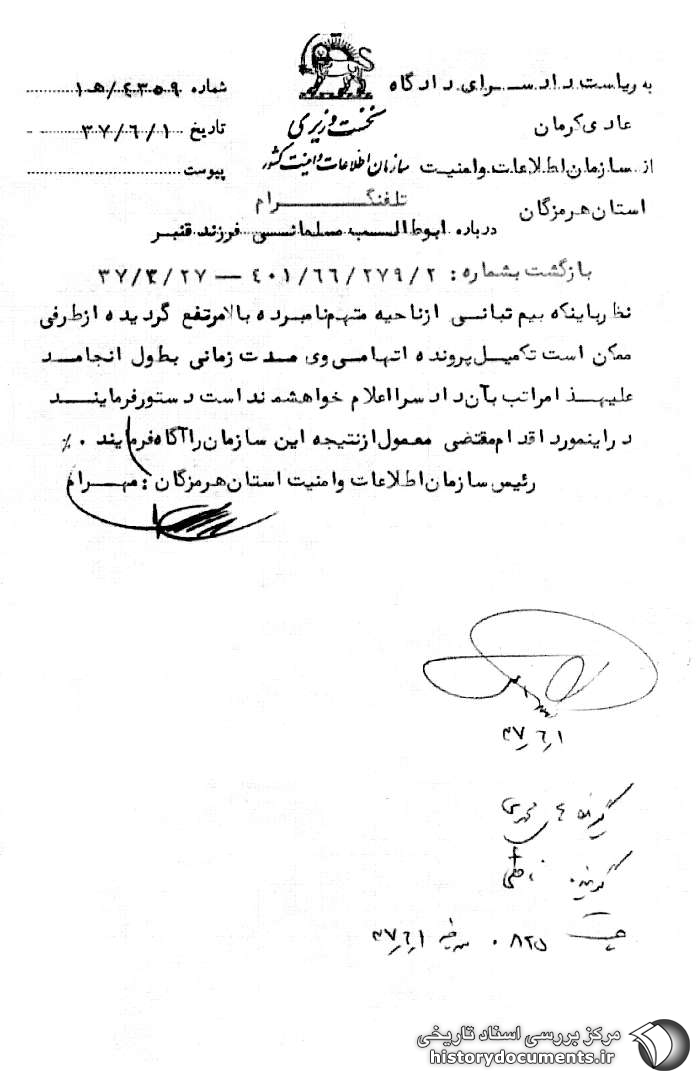 به ریاست دادسرای دادگاه
عادی کرمان
از سازمان اطلاعات و امنیت
استان هرمزگان
نخست وزیری
سازمان اطلاعات و امنیت کشور
شماره ۱۵/۴۳۵۹
تاریخ ۳۷/۶/۱
پیوست
تلفنگرام
درباره ابوطالب سلمانی فرزند قنبر
بازگشت بشماره: ۴۰۱/۶۶/۲۷۹/۲ — ۳۷/۴/۲۷
نظرباینکه بیم تبانی ازناحیه متهم نامبرده بالامرتفع گردیده ازطرفی
ممکن است تکمیل پرونده اتهامی وی مدت زمانی بطول انجامد
علیهذا مراتب بآن دادسرااعلام خواهشمند است دستورفرمایند
دراینمورد اقدام مقتضی معمول ازنتیجه این سازمان راآگاه فرمایند ٠٪
رئیس سازمان اطلاعات وامنیت استان هرمزگان : مهرام
۳۷/۶/۱
گیرنده
گوینده
ساعت ۸۲۵ ۳۷/۶/۱
مرکز بررسی اسناد تاریخی
historydocuments.ir